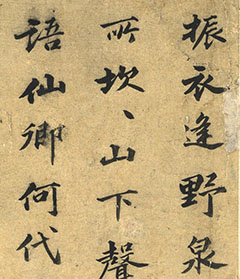 振衣逢野泉
所坎、山下聲
語仙卿何代